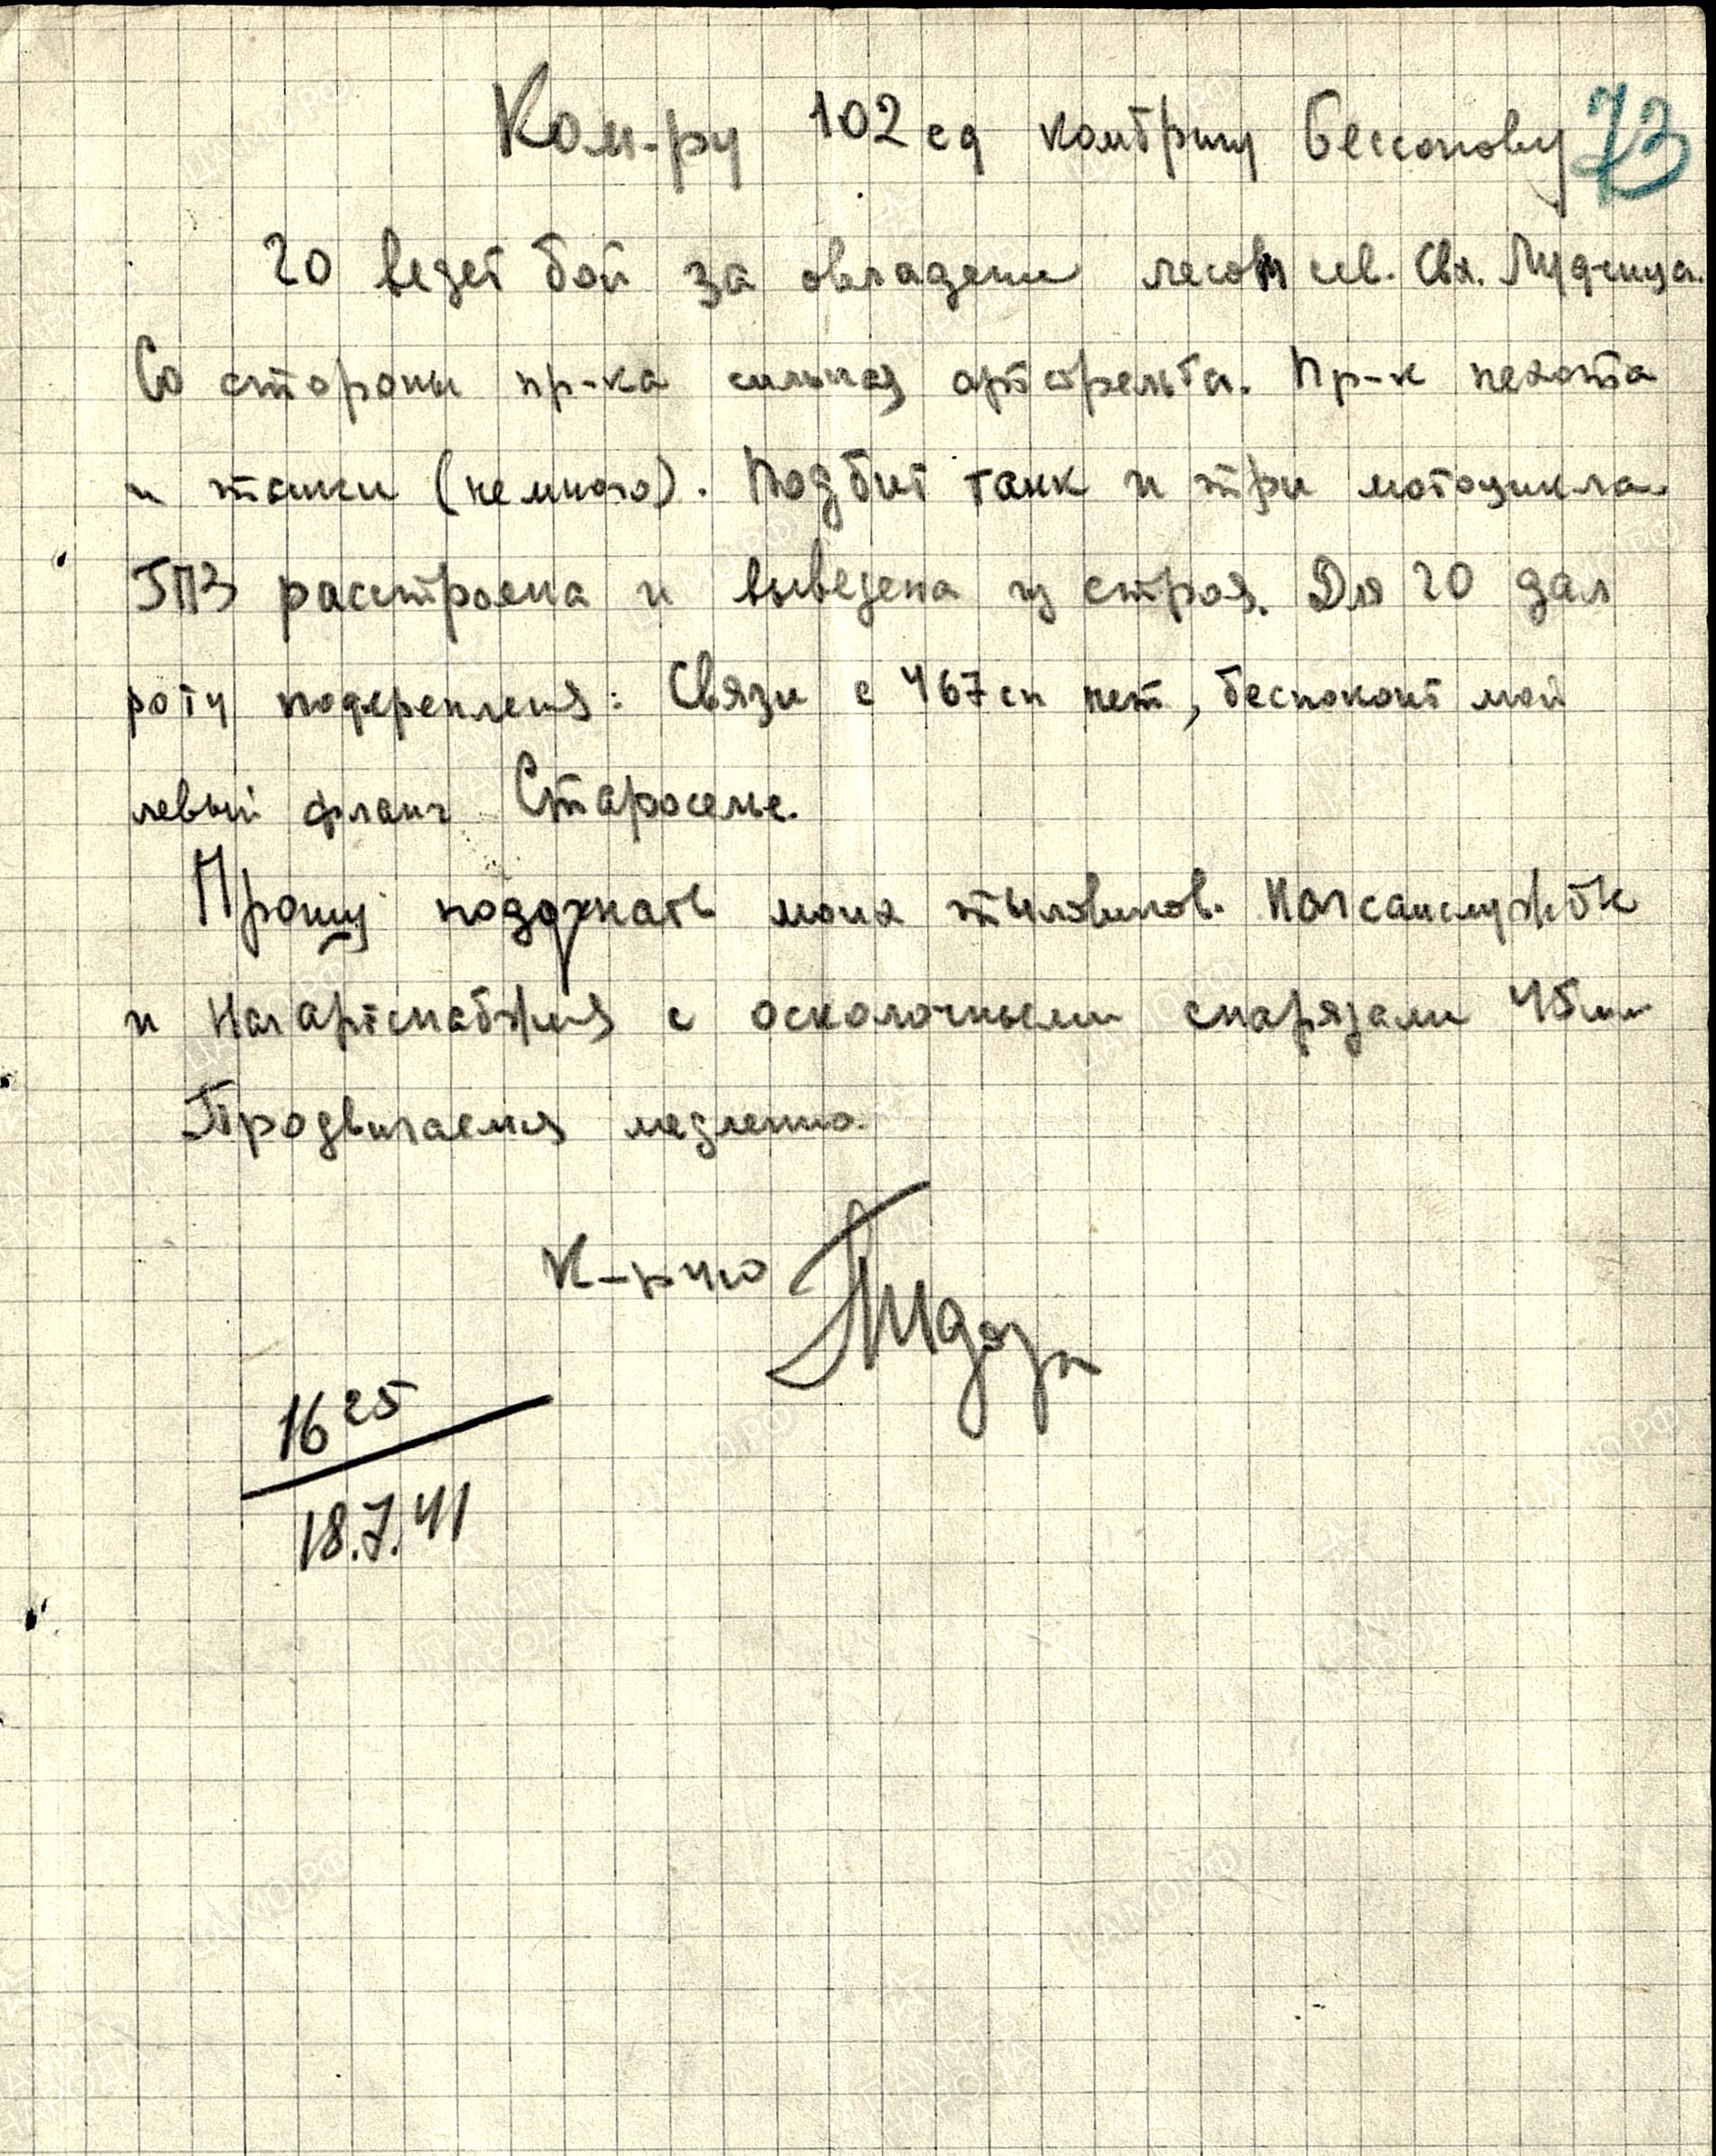 73
Ком-ру 102 сд комбригу Бессонову
ГО ведет бой за овладение лесом сев.
Со стороны пр-ка сильная артстрельба. Пр-к пехота
и танки (немного). Подбит танк и три мотоцикла.
ГПЗ расстроена и выведена из строя. Для ГО дал
роту подкрепления: Связи с 467 сп нет, беспокоит мой
левый фланг Староселье.
Прошу моих тыловиков.
и с осколочными снарядами 45 мм
Продвигаемся медленно.
16 25
18.7.41